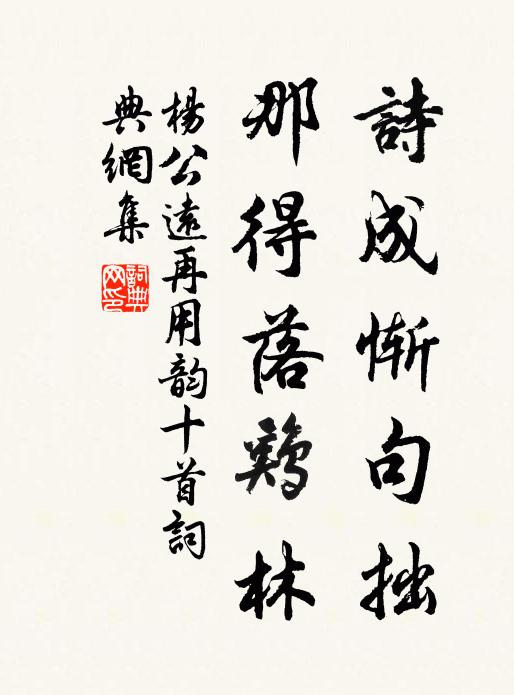 詩成慚句拙
那得落鷄林
楊公遠再用韵十首詞
典網集
詞典網印